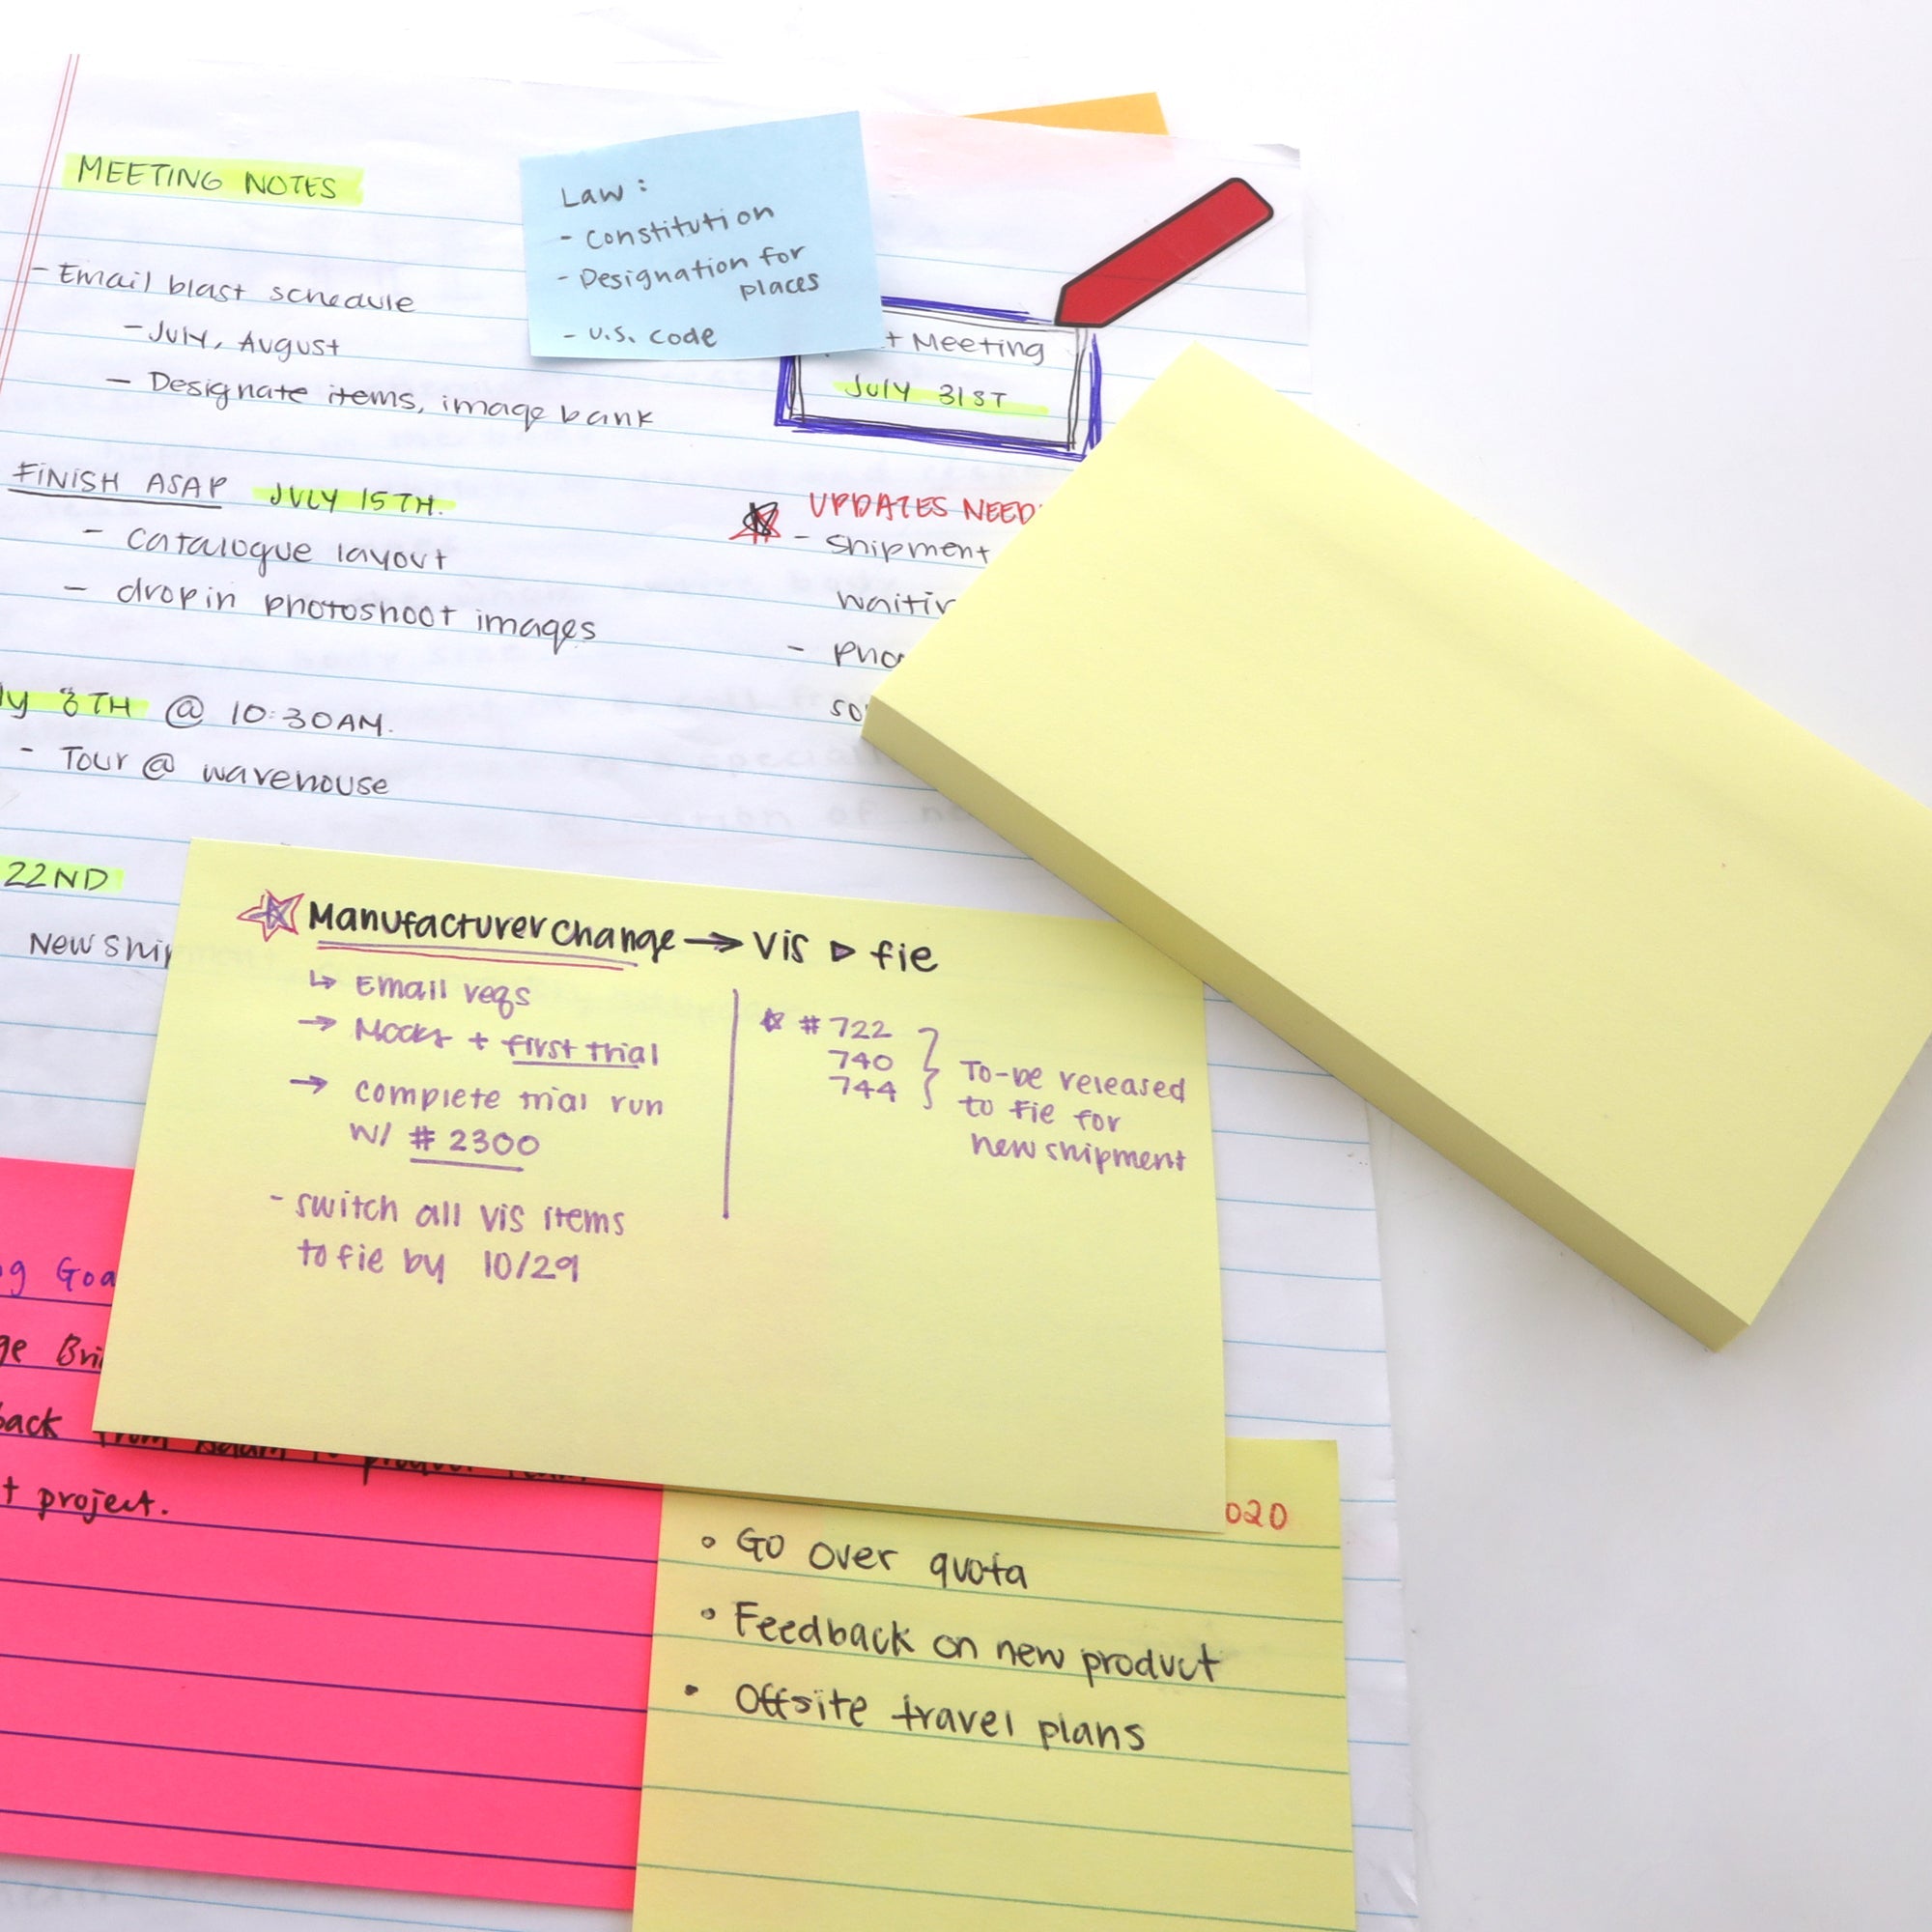 MEETING NOTES
- Email blast schedule
- July, August
- Designate items, image bank
FINISH ASAP JULY 15TH.
- Catalogue layout
- drop in photoshoot images
8TH @ 10:30AM.
- Tour @ warehouse
22ND
New
Law:
- Constitution
- Designation for
places
- U.S. Code
+ Meeting
July 31ST
UPDATES
- Shipment
-
Manufacturer change → Vis ▷ fie
↳ Email reqs
→ Mocks + first trial
→ complete trial run
w/ # 2300
- switch all vis items
to fie by 10/29
☆ # 722
740
744
To-be released
to fie for
new shipment
t project.
• Go over quota
• Feedback on new product
• Offsite travel plans